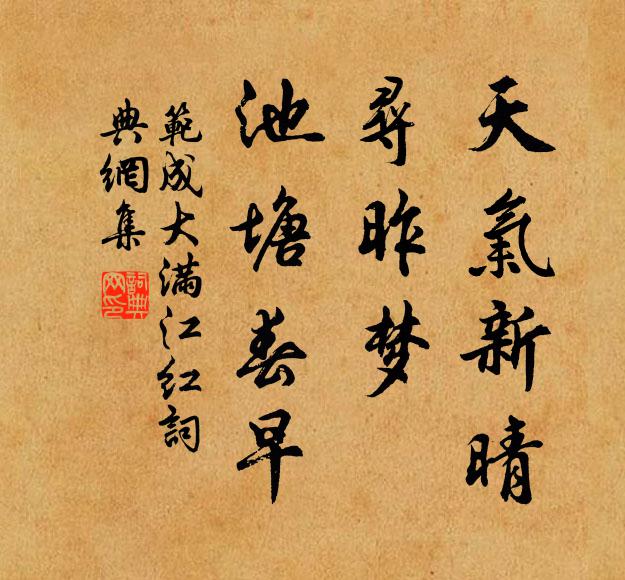 天氣新晴
尋昨梦
池塘春早
範成大滿江红詞
典網集
詞典网印